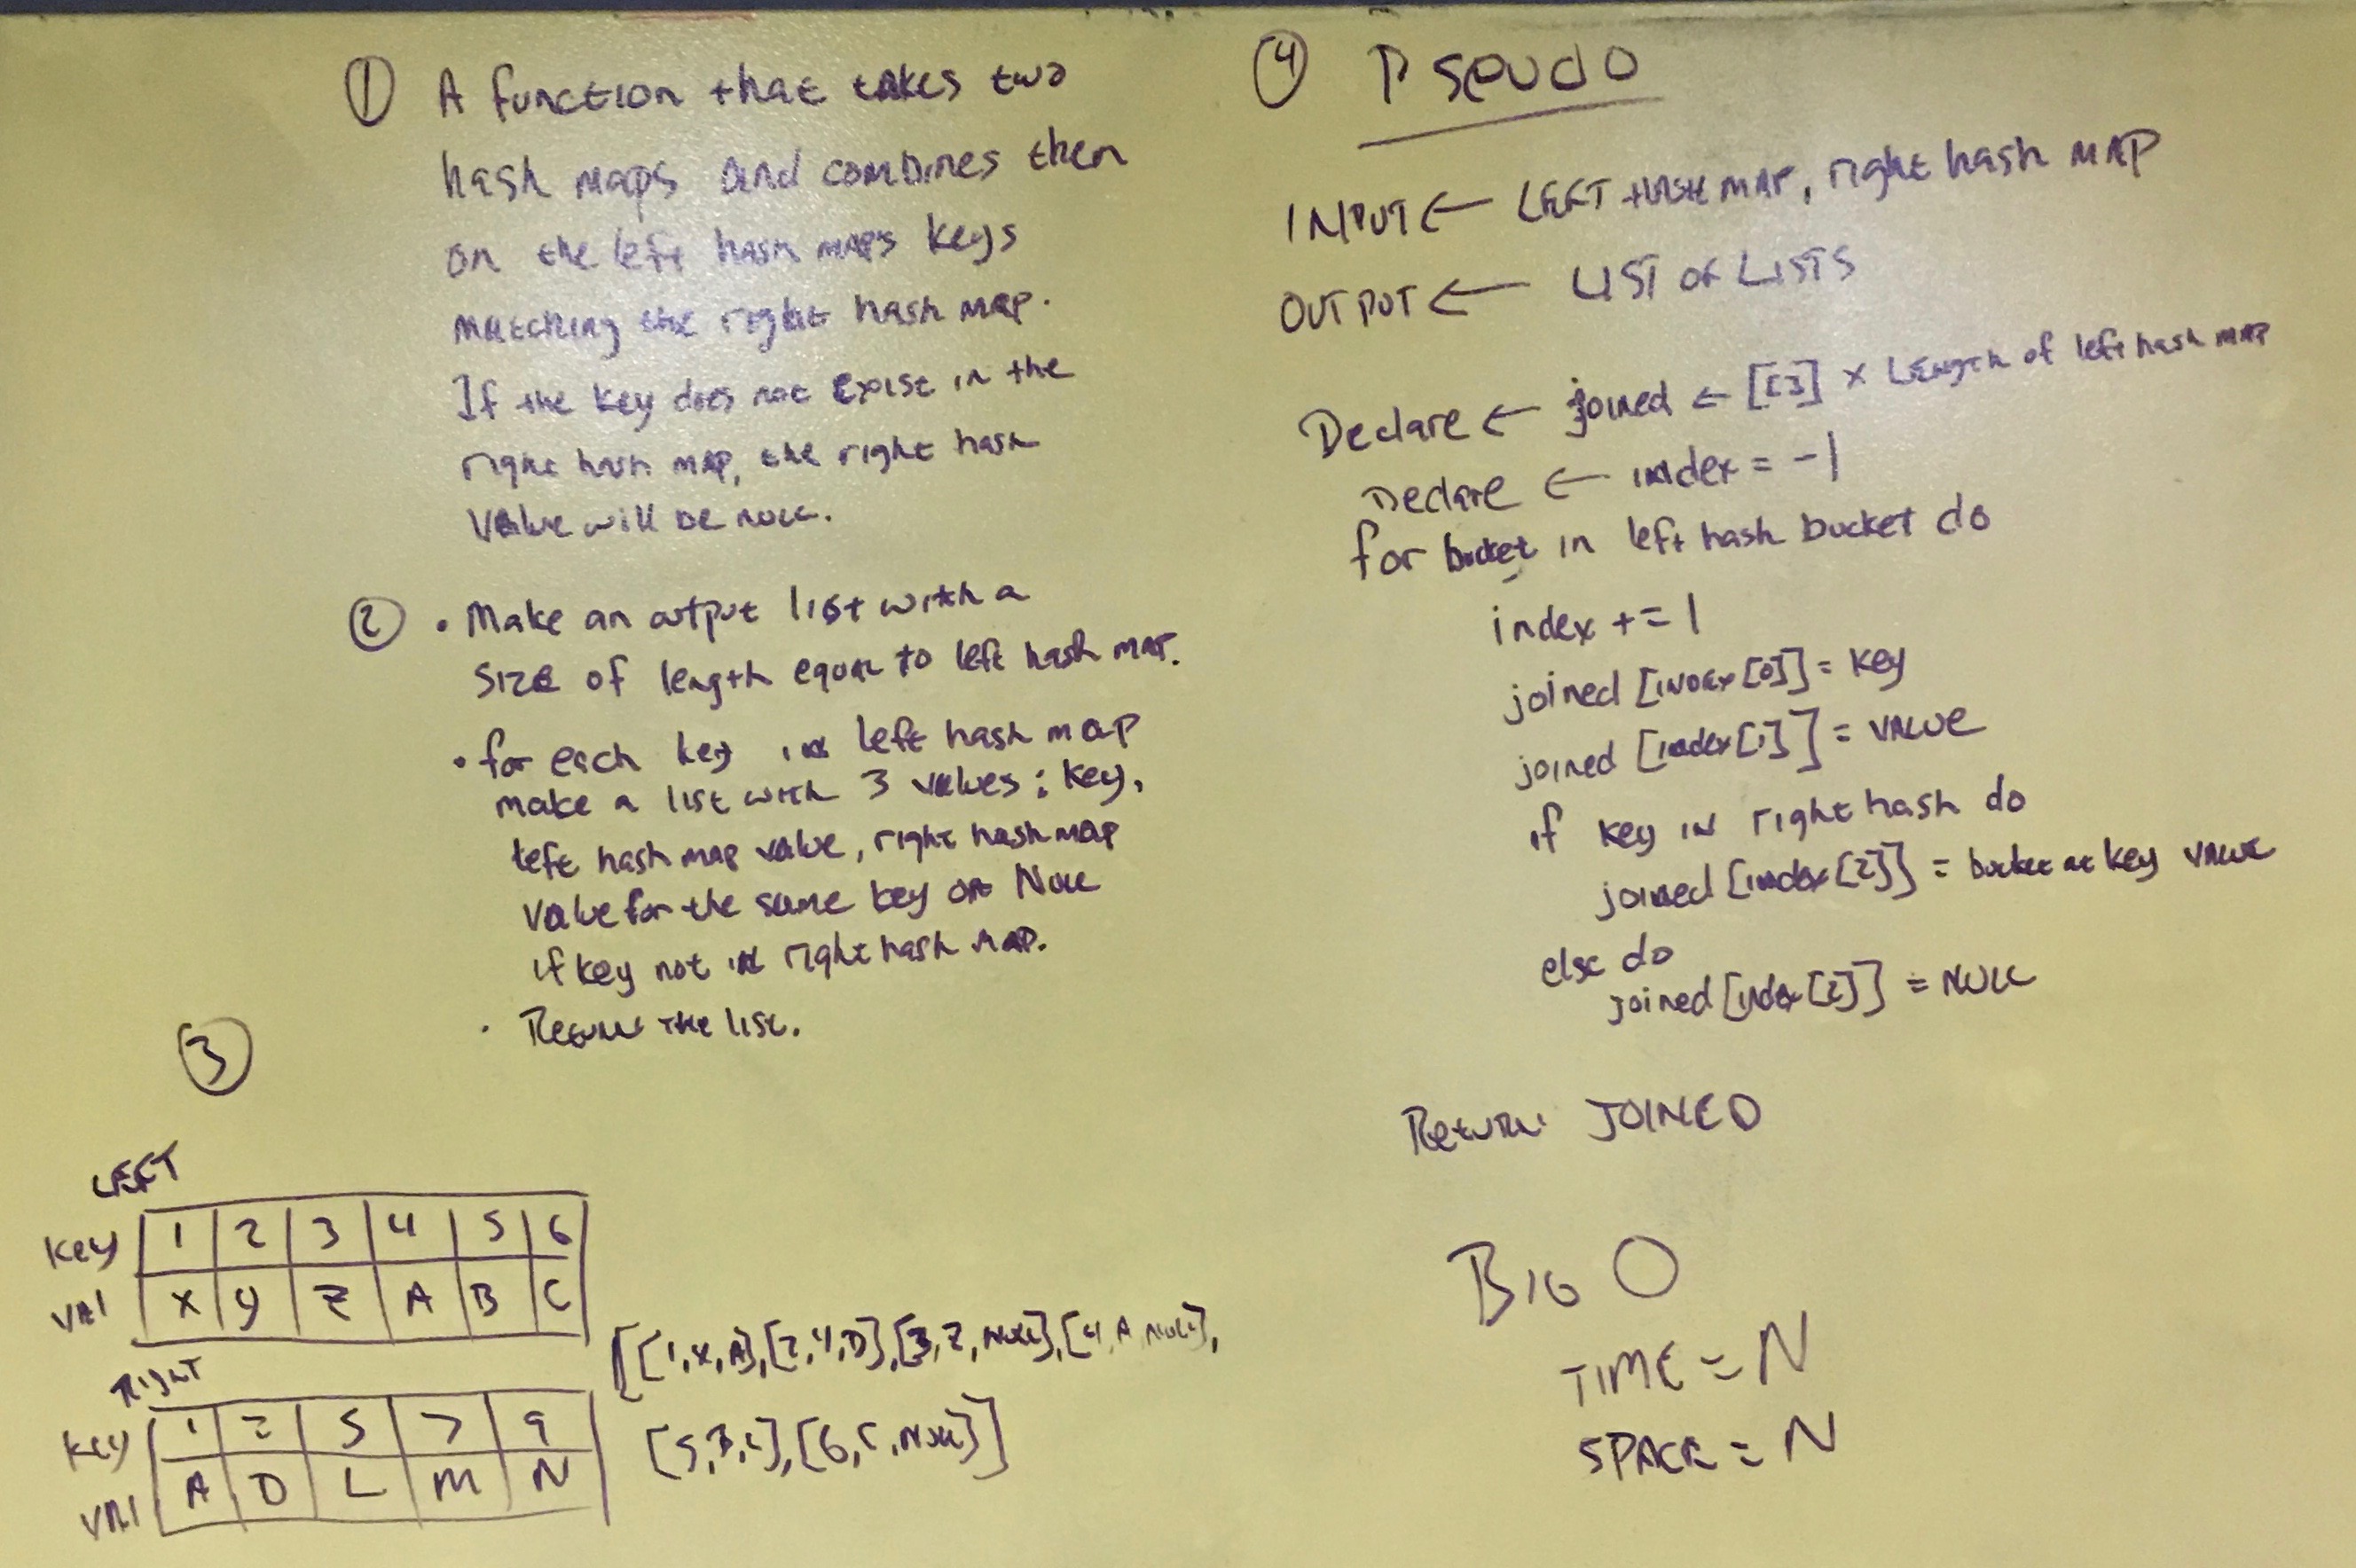 ① A function that takes two
hash maps and combines them
on the left hash maps keys
matching the right hash map.
If the key does not exist in the
right hash map, the right hash
value will be null.
② • Make an output list with a
size of length equal to left hash map.
• for each key in left hash map
make a list with 3 values: key,
left hash map value, right hash map
value for the same key or Null
if key not in right hash map.
• Return the list.
③
LEFT
Key 1 2 3 4 5 6
VAl X Y Z A B C
RIGHT
Key 1 2 5 7 9
VAl A D L M N
[[1,X,A],[2,Y,D],[3,Z,NULL],[4,A,NULL],
[5,B,L],[6,C,NULL]]
④ Pseudo
INPUT ← LEFT HASH MAP, right hash MAP
OUTPUT ← LIST OF LISTS
Declare ← joined ← [[3] x Length of left hash map
Declare ← index = -1
for bucket in left hash bucket do
index += 1
joined [index[0]] = key
joined [index[1]] = value
if key in right hash do
joined [index[2]] = bucket at key value
else do
joined [index[2]] = NULL
Return JOINED
BIG O
TIME = N
SPACE = N